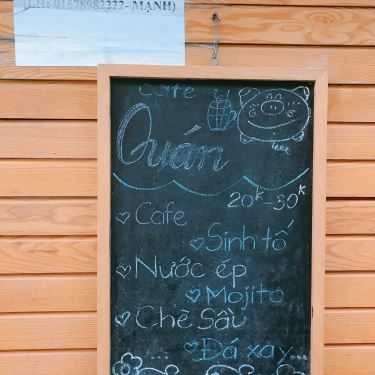 (LH: 01678982222- MẠNH)
Cafe
Quán
20K-30K
Cafe
Sinh tố
Nước ép
Mojito
Chè Sầu
Đá xay...
...